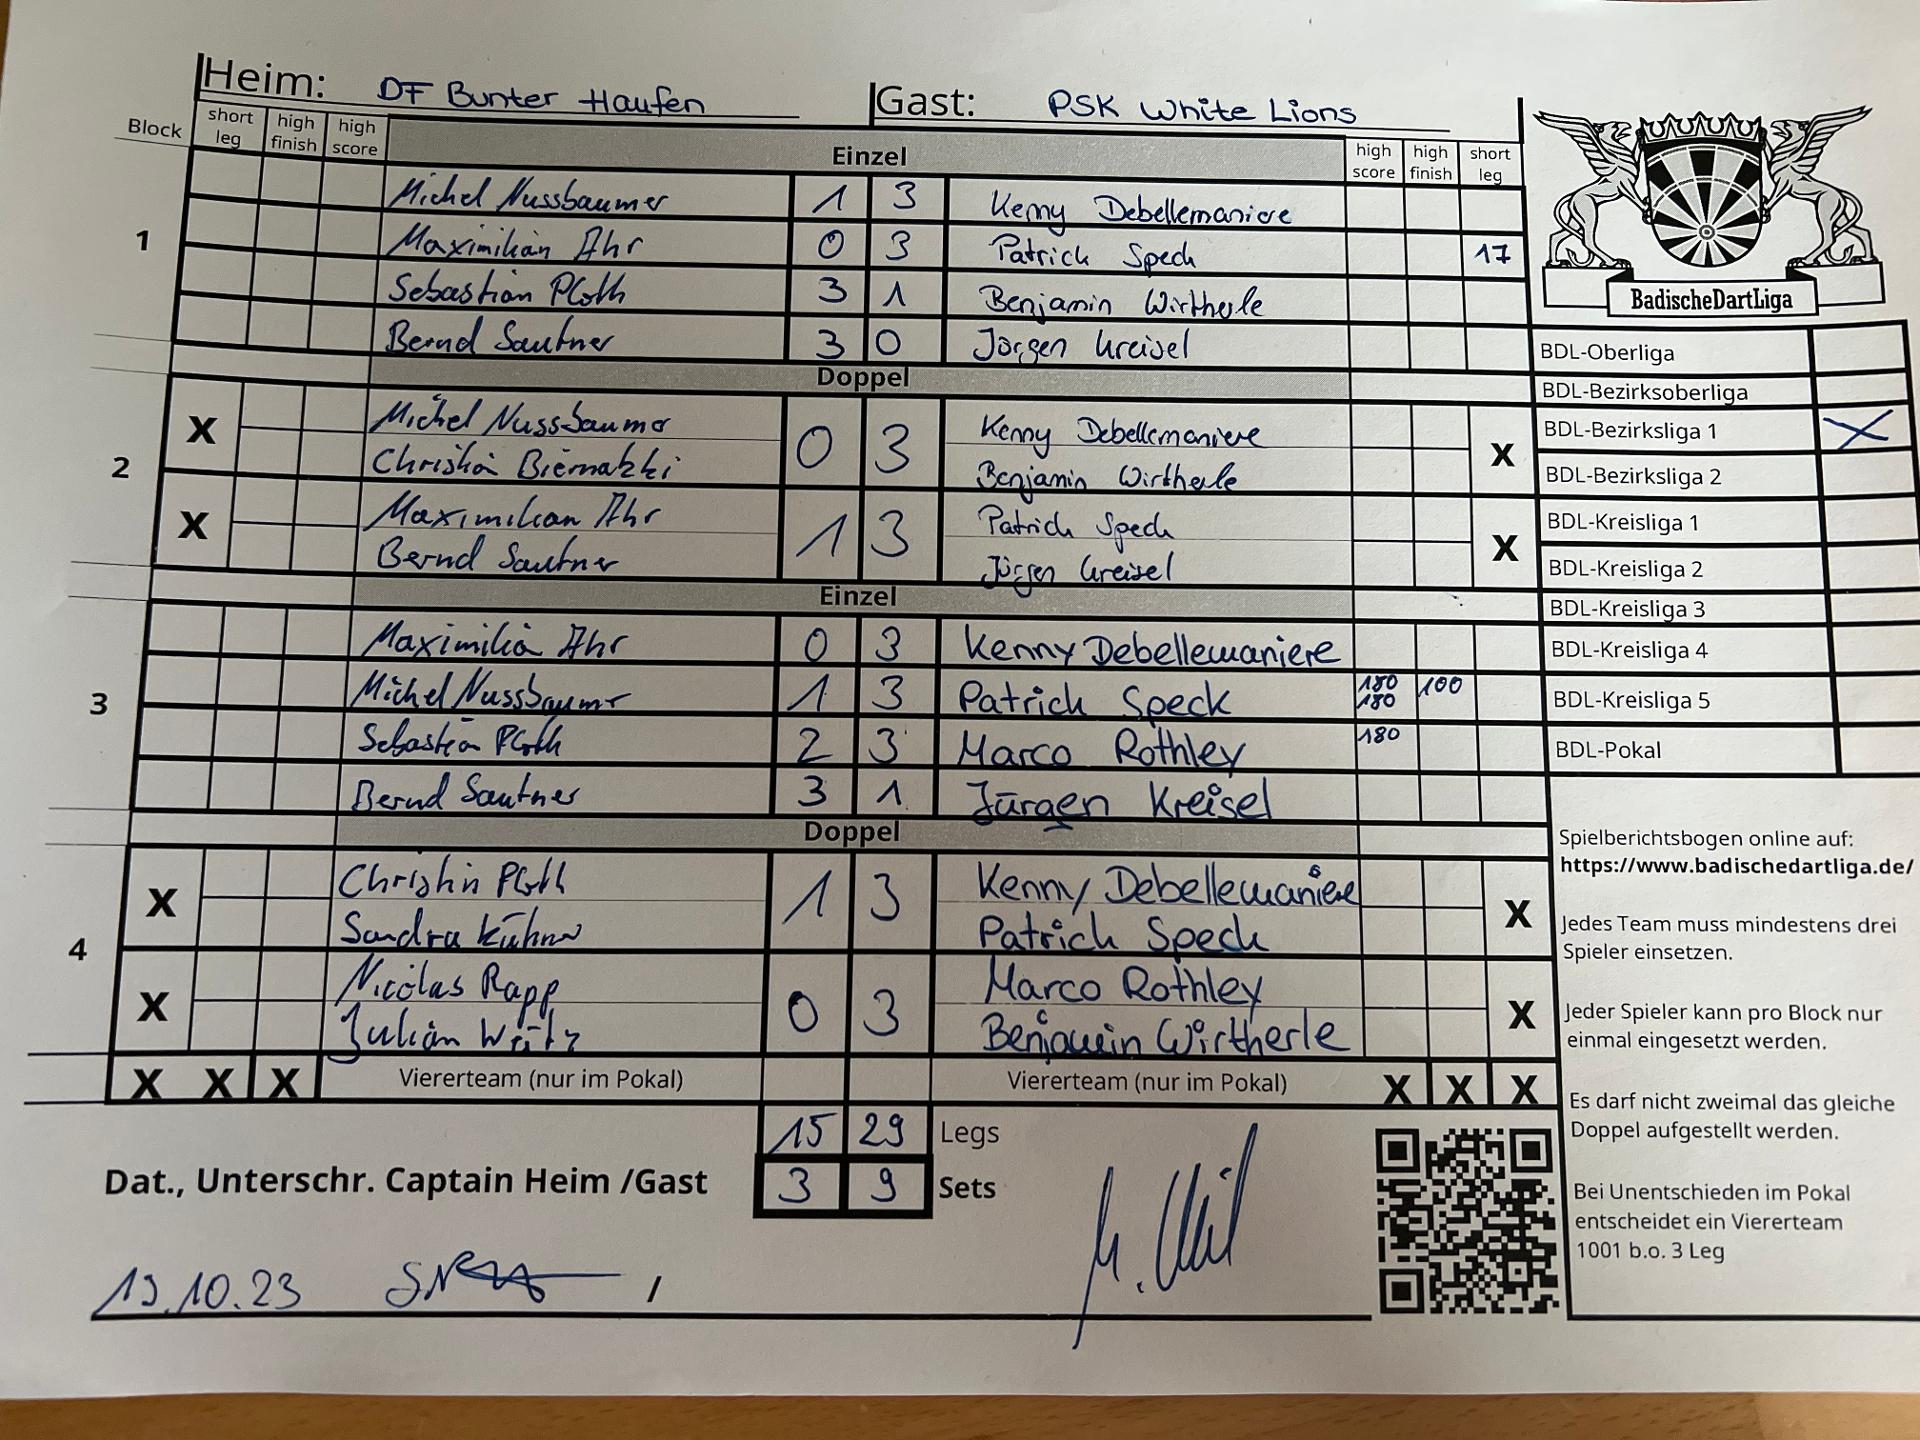 Heim: DF Bunter Haufen Gast: PSK White Lions
Block short leg high finish high score Einzel high score high finish short leg
1
Michel Nussbaumer 1 3 Kenny Debellemaniere
Maximilian Ahr 0 3 Patrick Speck 17
Sebastian Ploth 3 1 Benjamin Wirtherle
Bernd Sautner 3 0 Jürgen Kreisel
Doppel
2
X Michel Nussbaumer 0 3 Kenny Debellemaniere X
Christian Biernatzki Benjamin Wirtherle
X Maximilian Ahr 1 3 Patrick Speck X
Bernd Sautner Jürgen Kreisel
Einzel
3
Maximilian Ahr 0 3 Kenny Debellemaniere
Michel Nussbaumer 1 3 Patrick Speck 180 180 100
Sebastian Ploth 2 3 Marco Rothley 180
Bernd Sautner 3 1 Jürgen Kreisel
Doppel
4
X Christin Ploth 1 3 Kenny Debellemaniere X
Sandra Kühner Patrick Speck
X Nicolas Rapp 0 3 Marco Rothley X
Julian Benjamin Wirtherle
X X X Viererteam (nur im Pokal) Viererteam (nur im Pokal) X X X
15 29 Legs
Dat., Unterschr. Captain Heim /Gast 3 9 Sets
13.10.23 /
BadischeDartLiga
BDL-Oberliga
BDL-Bezirksoberliga
BDL-Bezirksliga 1 X
BDL-Bezirksliga 2
BDL-Kreisliga 1
BDL-Kreisliga 2
BDL-Kreisliga 3
BDL-Kreisliga 4
BDL-Kreisliga 5
BDL-Pokal
Spielberichtsbogen online auf:
https://www.badischedartliga.de/
Jedes Team muss mindestens drei
Spieler einsetzen.
Jeder Spieler kann pro Block nur
einmal eingesetzt werden.
Es darf nicht zweimal das gleiche
Doppel aufgestellt werden.
Bei Unentschieden im Pokal
entscheidet ein Viererteam
1001 b.o. 3 Leg